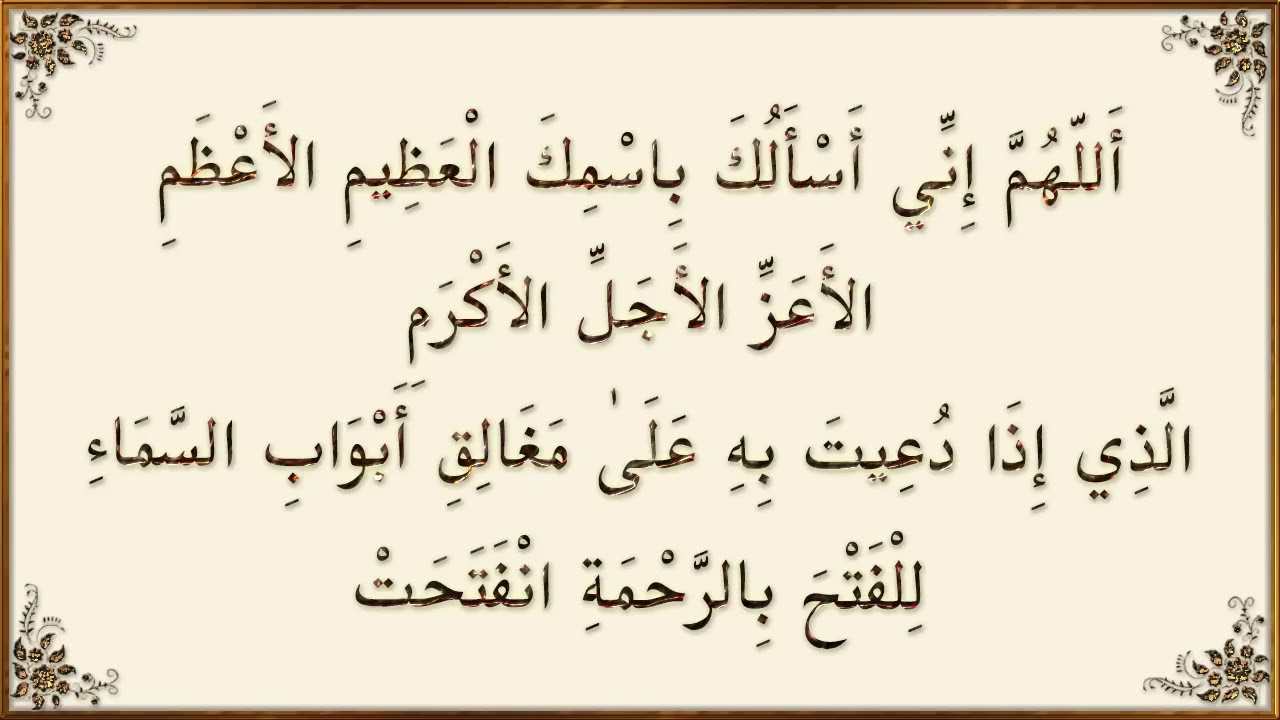 أَللّهُمَّ إِنِّي أَسْأَلُكَ بِاسْمِكَ الْعَظِيمِ الأَعْظَمِ
الأَعَزِّ الأَجَلِّ الأَكْرَمِ
الَّذِي إِذَا دُعِيتَ بِهِ عَلَىٰ مَغَالِقِ أَبْوَابِ السَّمَاءِ
لِلْفَتْحَ بِالرَّحْمَةِ انْفَتَحَتْ